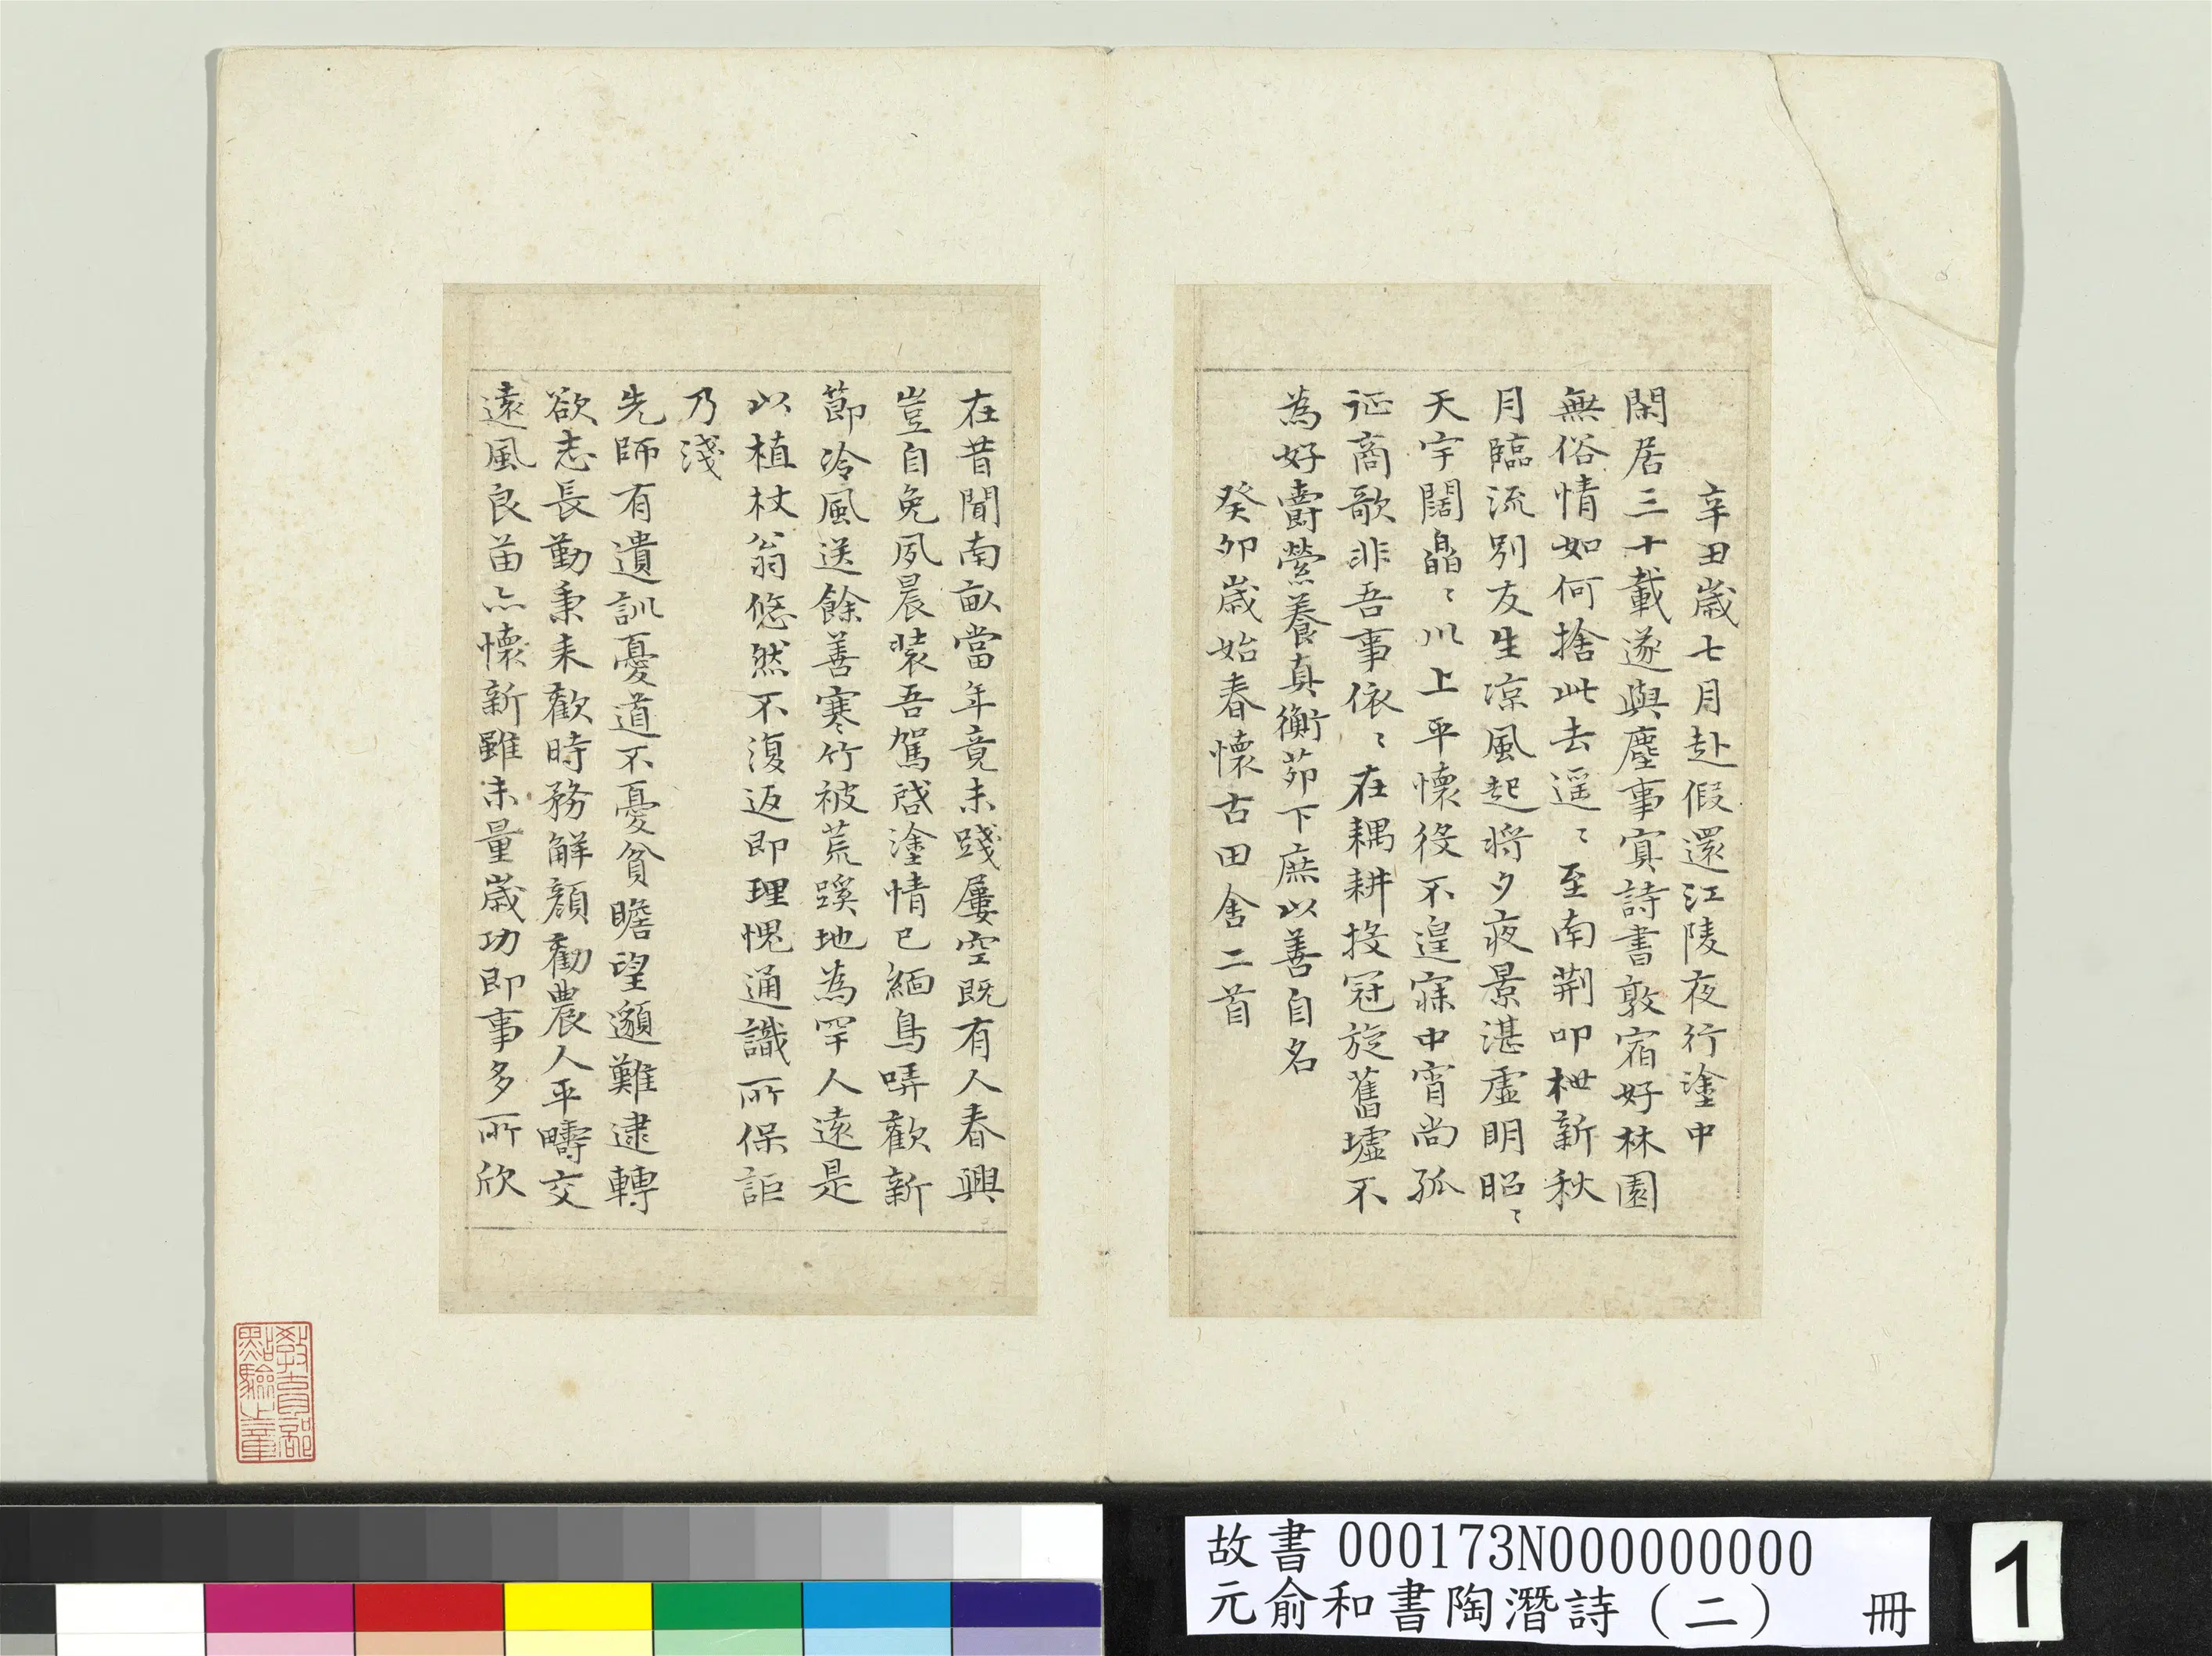 辛丑歲七月赴假還江陵夜行塗中
閑居三十載遂與塵事冥詩書敦宿好林園
無俗情如何捨此去遥〻至南荆叩枻新秋
月臨流別友生涼風起將夕夜景湛虛明昭〻
天宇闊皛〻川上平懷役不遑寐中宵尚孤
征商歌非吾事依〻在耦耕投冠旋舊墟不
為好爵縈養真衡茆下庶以善自名
癸卯歲始春懷古田舍二首
在昔聞南畝當年竟未踐屢空既有人春興
豈自免夙晨裝吾駕啓塗情已緬鳥哢歡新
節泠風送餘善寒竹被荒蹊地為罕人遠是
以植杖翁悠然不復返即理愧通識所保詎
乃淺
先師有遺訓憂道不憂貧瞻望邈難逮轉
欲志長勤秉耒歡時務解顏勸農人平疇交
遠風良苗亦懷新雖未量歲功即事多所欣
教育部
點驗之章
故書 000173N000000000
元俞和書陶潛詩（二） 冊
1